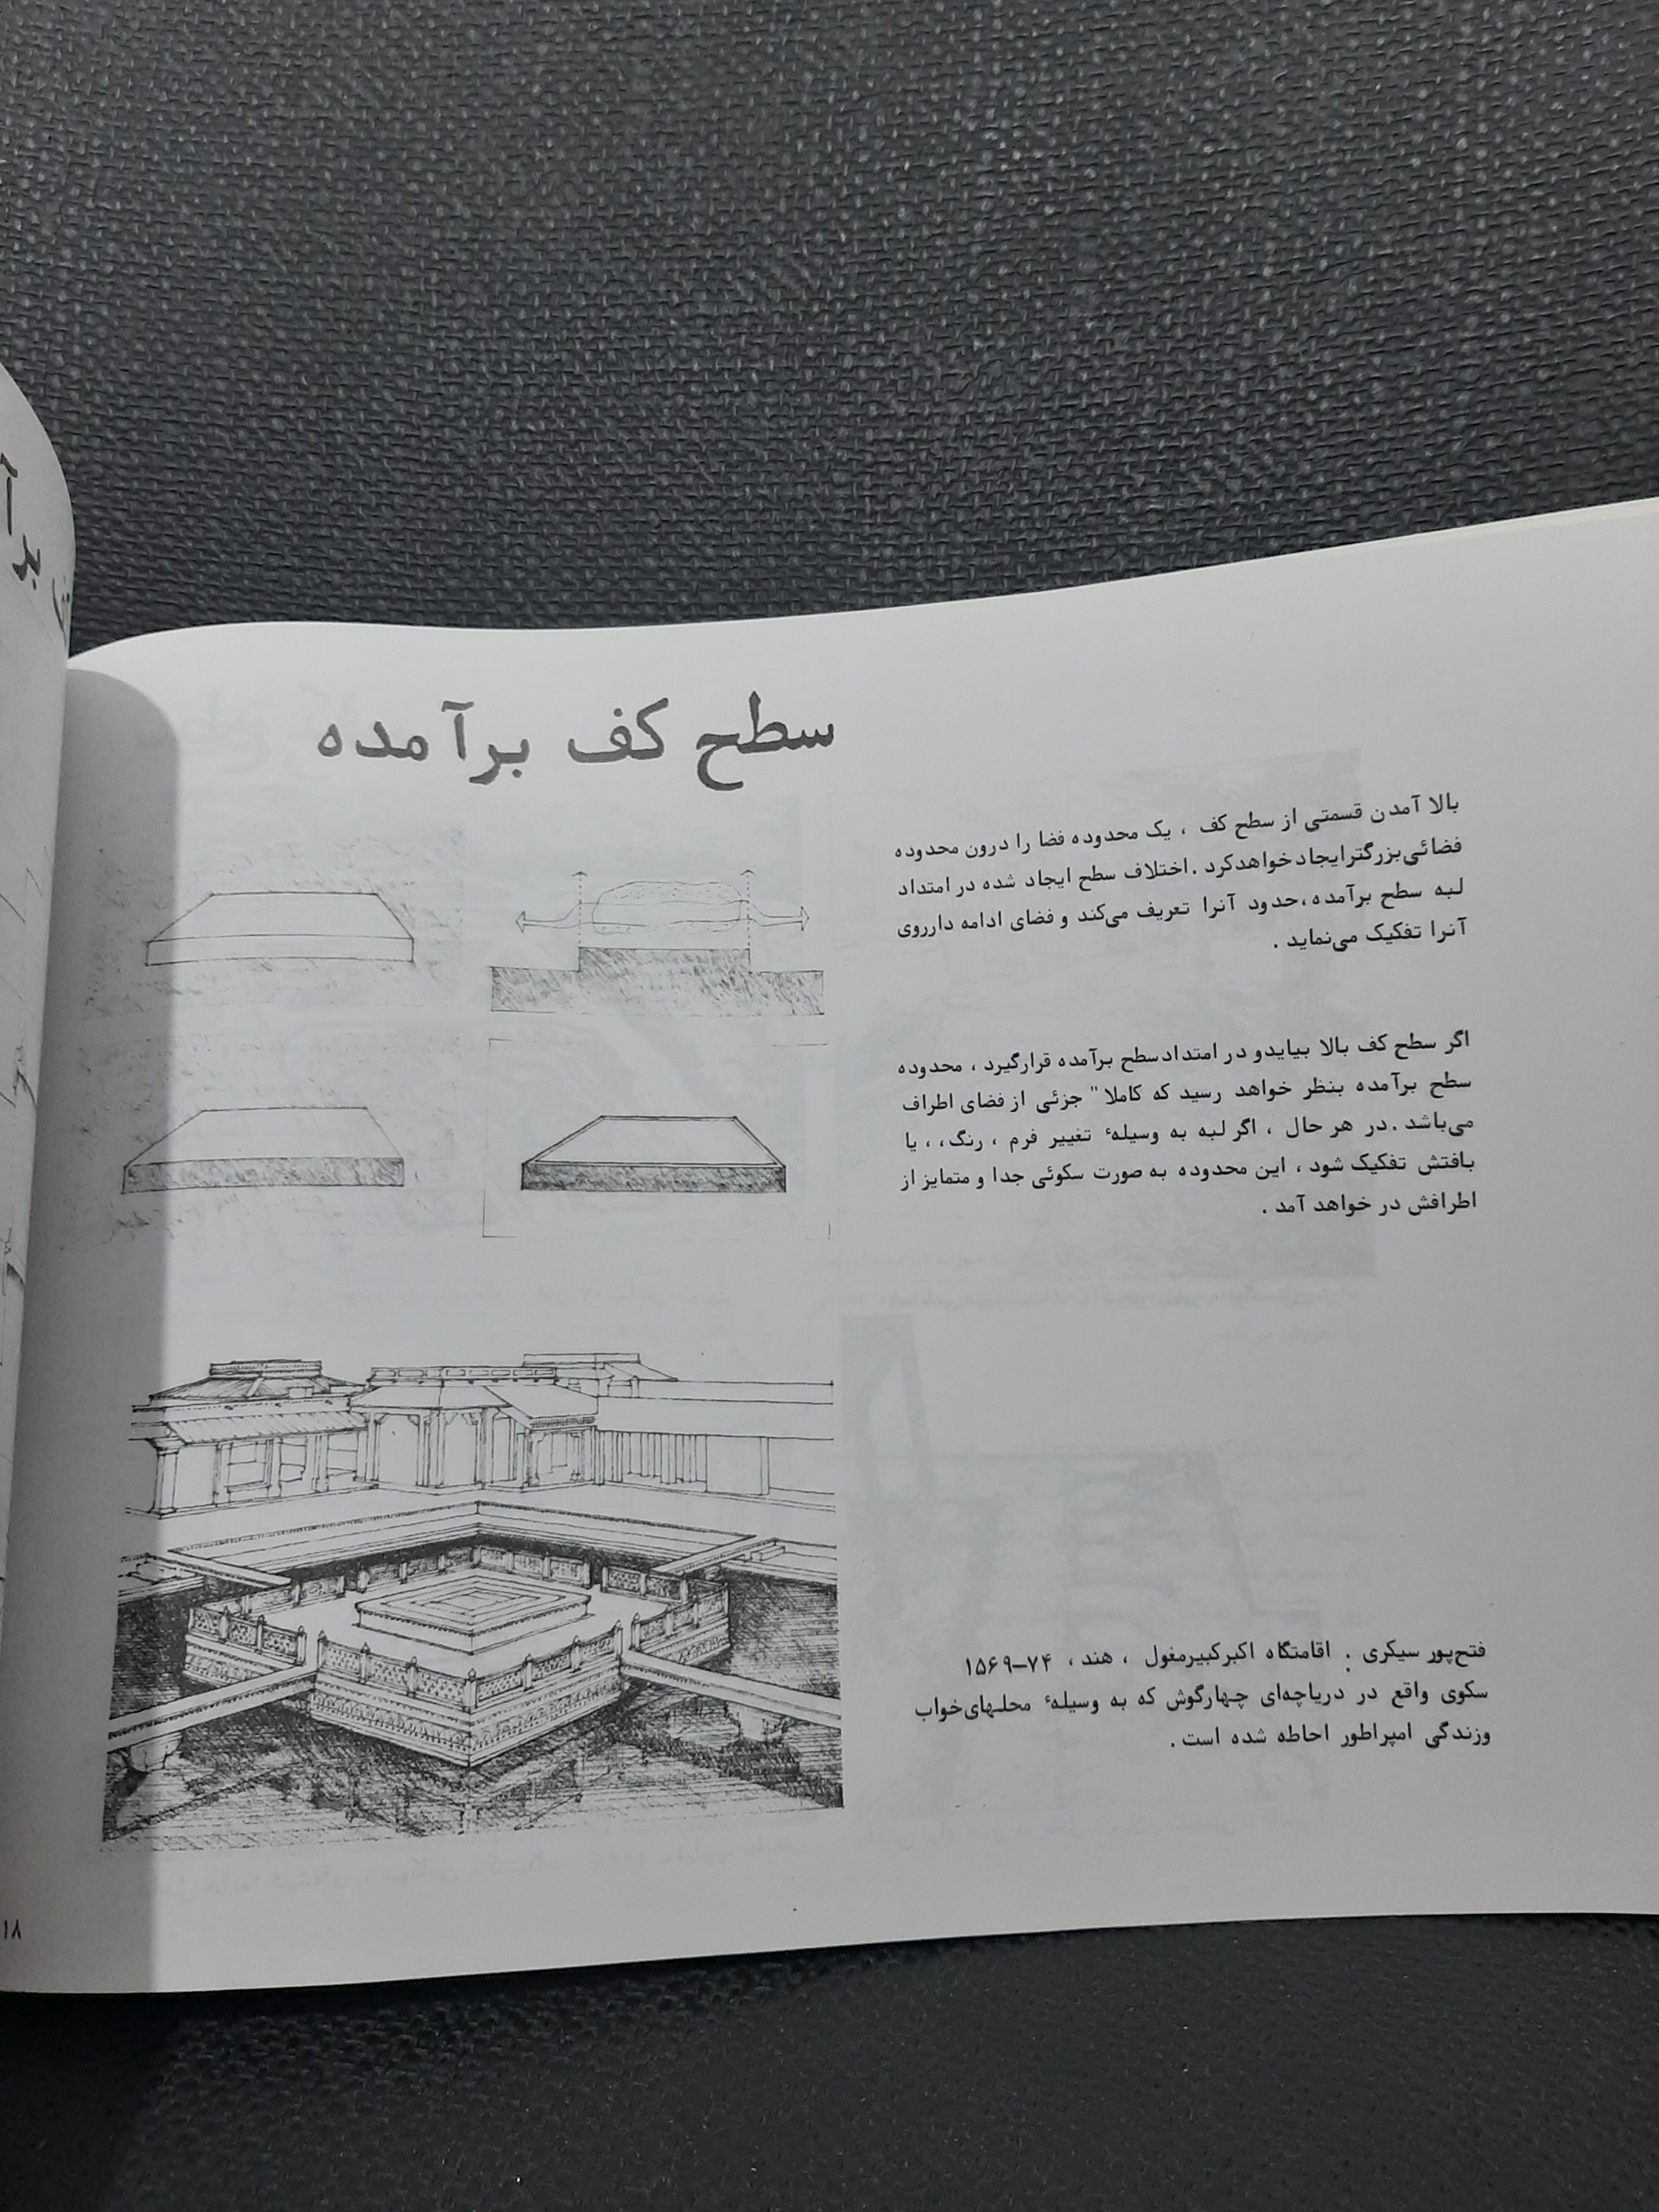 سطح کف برآمده
بالا آمدن قسمتی از سطح کف ، یک محدوده فضا را درون محدوده
فضائی‌بزرگترایجادخواهدکرد .اختلاف سطح ایجاد شده در امتداد
لبه سطح برآمده،حدود آنرا تعریف می‌کند و فضای ادامه دارروی
آنرا تفکیک می‌نماید .
اگر سطح کف بالا بیایدو در امتدادسطح برآمده قرارگیرد ، محدوده
سطح برآمده بنظر خواهد رسید که کاملا" جزئی از فضای اطراف
می‌باشد .در هر حال ، اگر لبه به وسیلهٔ تغییر فرم ، رنگ، ، یا
بافتش تفکیک شود ، این محدوده به صورت سکوئی جدا و متمایز از
اطرافش در خواهد آمد .
فتح‌پور سیکری : اقامتگاه اکبرکبیرمغول ، هند ، ۷۴–۱۵۶۹
سکوی واقع در دریاچه‌ای چهارگوش که به وسیلهٔ محلهای‌خواب
وزندگی امپراطور احاطه شده است .
۱۸